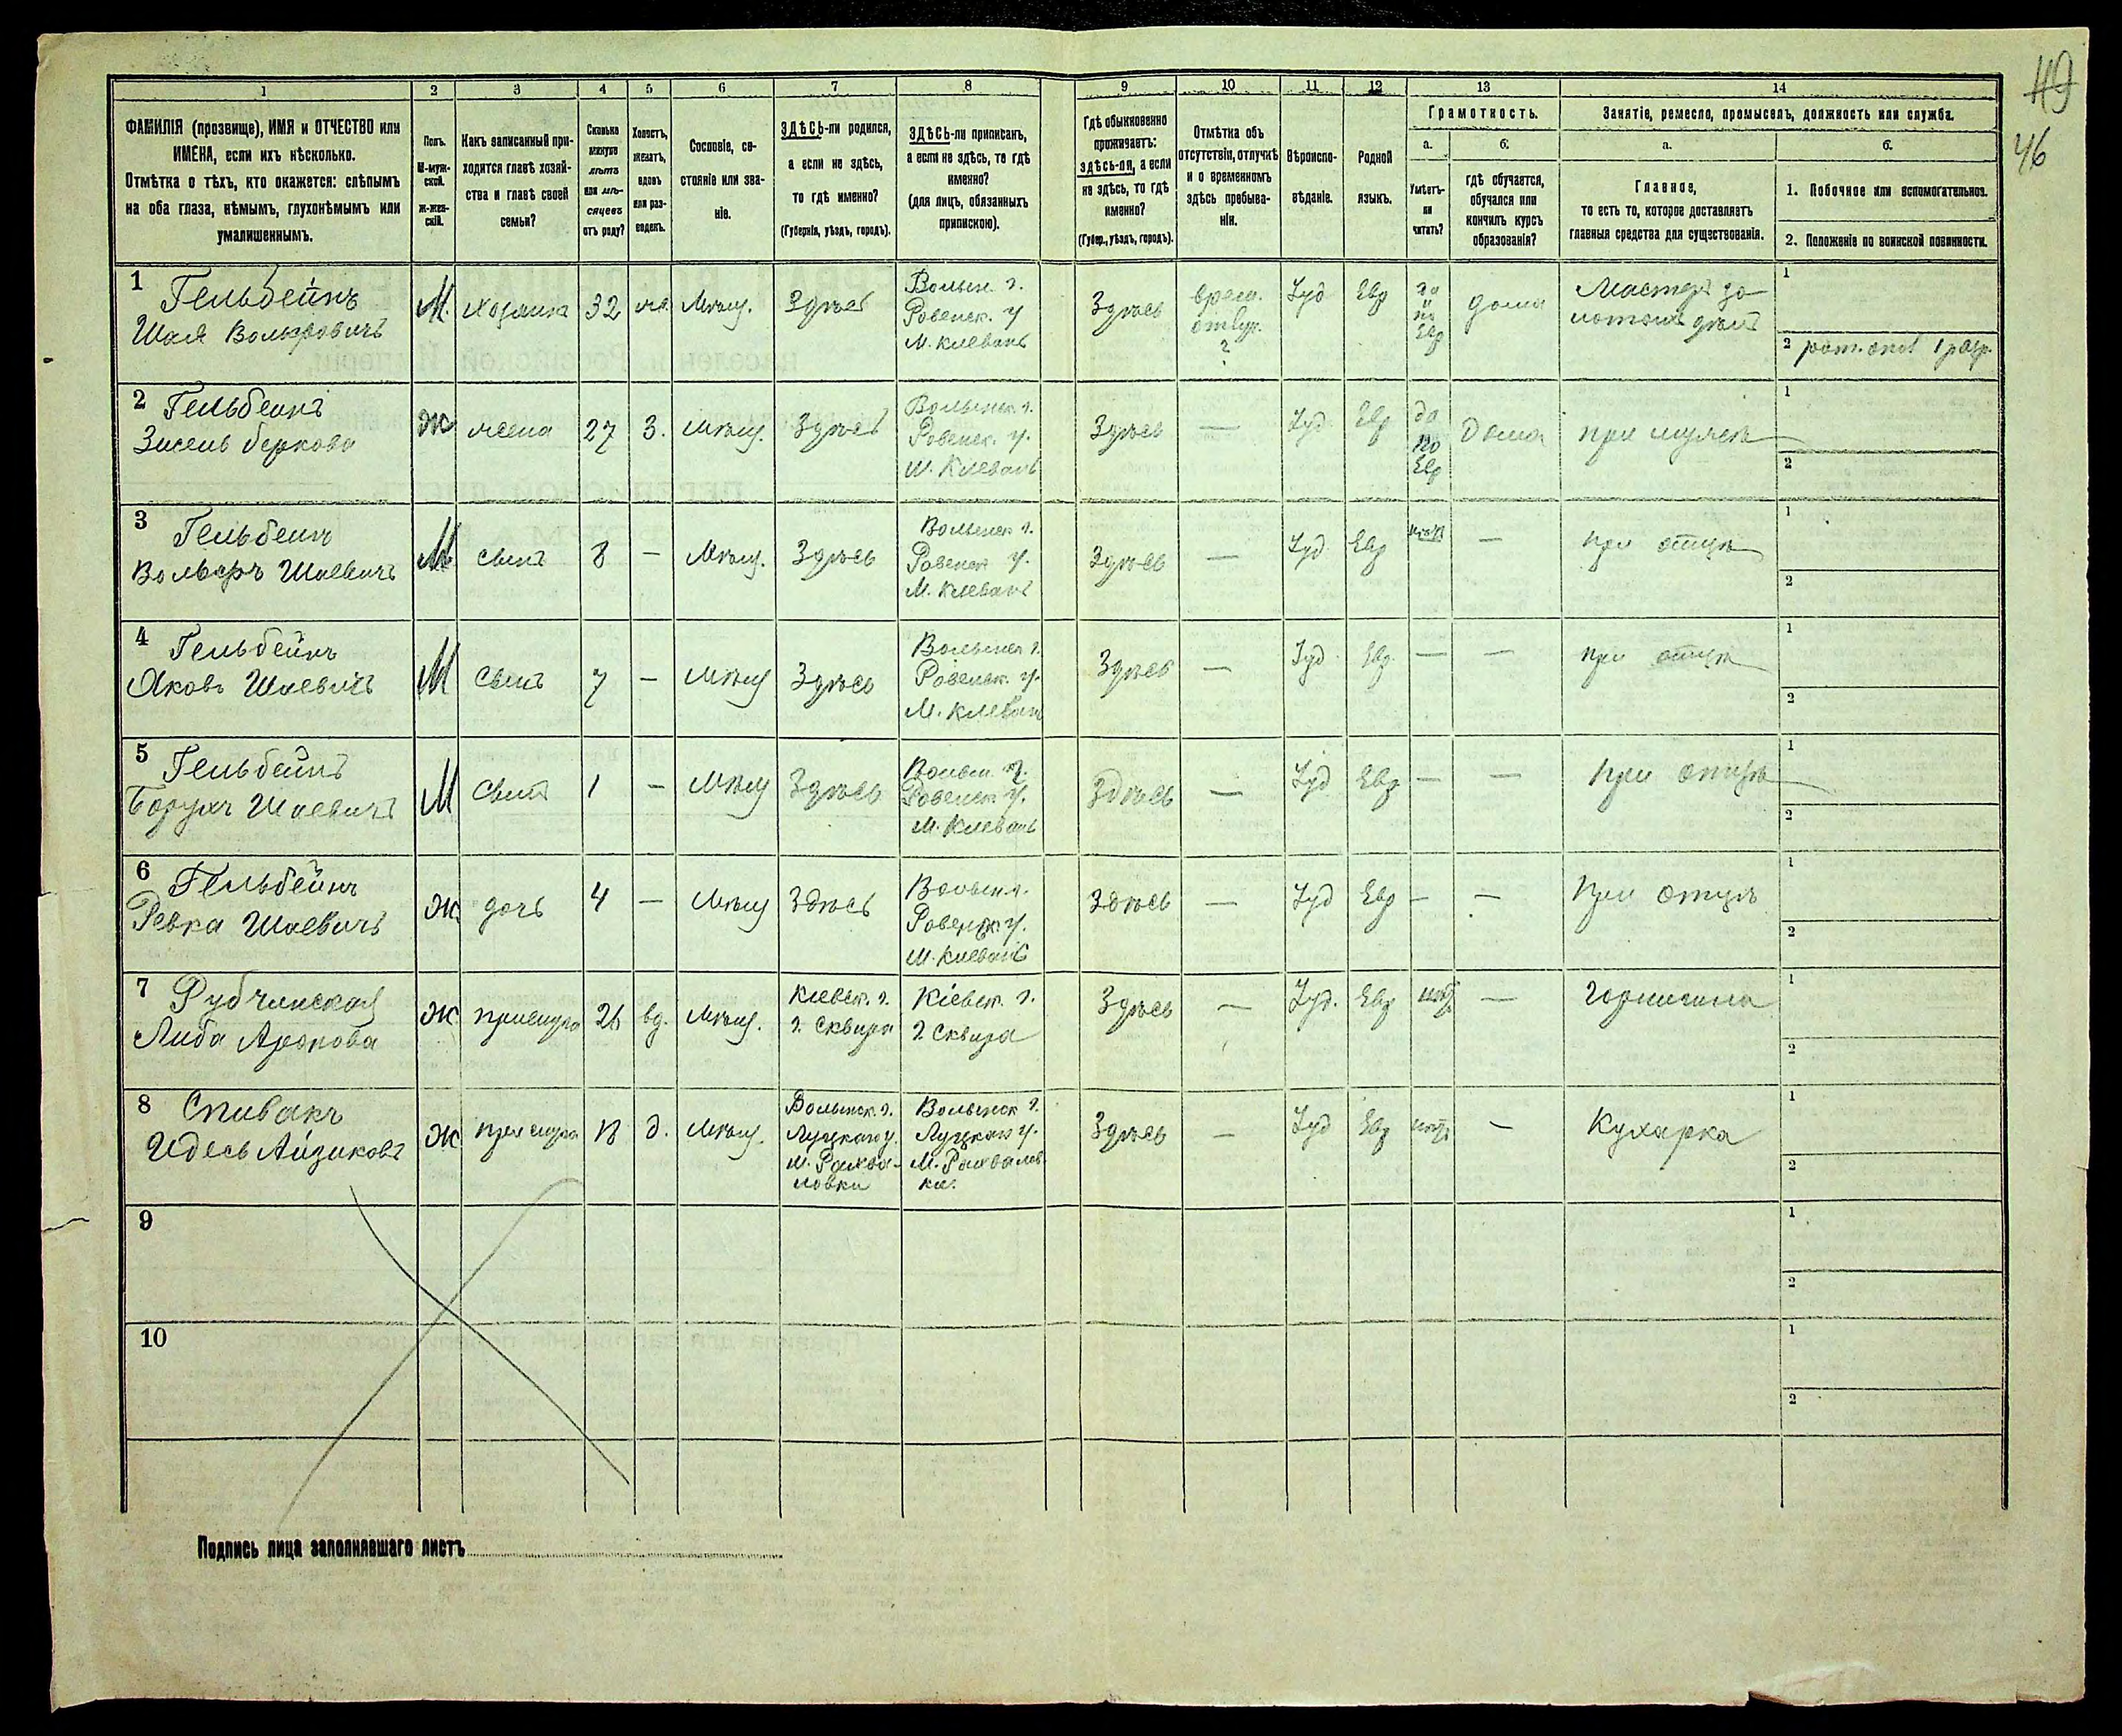 49
46
1
2
3
4
5
6
7
8
9
10
11
12
13
14
ФАМИЛІЯ (прозвище), ИМЯ и ОТЧЕСТВО или
ИМЕНА, если ихъ нѣсколько.
Отмѣтка о тѣхъ, кто окажется: слѣпымъ
на оба глаза, нѣмымъ, глухонѣмымъ или
умалишеннымъ.
Полъ.
М-муж-
ской.
ж-жен-
скій.
Какъ записанный при-
ходится главѣ хозяй-
ства и главѣ своей
семьи?
Сколько
минуло
лѣтъ
или мѣ-
сяцевъ
отъ роду?
Холостъ,
женатъ,
вдовъ
или раз-
веденъ.
Сословіе, со-
стояніе или зва-
ніе.
ЗДѢСЬ-ли родился,
а если не здѣсь,
то гдѣ именно?
(Губернія, уѣздъ, городъ).
ЗДѢСЬ-ли приписанъ,
а если не здѣсь, то гдѣ
именно?
(для лицъ, обязанныхъ
припискою).
Гдѣ обыкновенно
проживаетъ:
здѣсь-ли, а если
не здѣсь, то гдѣ
именно?
(Губер., уѣздъ, городъ).
Отмѣтка объ
отсутствіи, отлучкѣ
и о временномъ
здѣсь пребыва-
ніи.
Вѣроиспо-
вѣданіе.
Родной
языкъ.
Грамотность.
а.
Умѣетъ-
ли
читать?
б.
гдѣ обучается,
обучался или
кончилъ курсъ
образованія?
Занятіе, ремесло, промыселъ, должность или служба.
а.
Главное,
то есть то, которое доставляетъ
главныя средства для существованія.
б.
1. Побочное или вспомогательное.
2. Положеніе по воинской повинности.
1
Гельбейнъ
Шая Вольфовичъ
М.
хозяинъ
32
же.
Мѣщ.
Здѣсь
Волын. г.
Ровенск. у
М. Клевань
Здѣсь
врем.
отлуч.
?
Іуд
Евр
да
по
Евр
дома
Мастеръ зо-
лотыхъ дѣлъ
1
2 рат. опол 1 разр.
2
Гельбеинъ
Зисель Беркова
Ж
жена
27
З.
Мѣщ.
Здѣсь
Волынск. г.
Ровенск. у.
м. Клевань
Здѣсь
—
Іуд
Евр
да
по
Евр
Дома
при мужѣ
1
2
3
Гельбеинъ
Вольфъ Шаевичъ
М
сынъ
8
—
Мѣщ.
Здѣсь
Волынск г.
Ровенск у.
М. Клевань
Здѣсь
—
Іуд
Евр
нѣтъ
—
при отцѣ
1
2
4
Гельбейнъ
Яковъ Шаевичъ
М
Сынъ
7
—
Мѣщ
Здѣсь
Волынск г.
Ровенск. у.
М. Клевань
Здѣсь
—
Іуд
Евр.
—
—
при отцѣ
1
2
5
Гельбейнъ
Борухъ Шаевичъ
М
Сынъ
1
—
Мѣщ
Здѣсь
Волын. г.
Ровенск у.
М. Клевань
Здѣсь
—
Іуд
Евр
—
—
При отцѣ
1
2
6
Гельбейнъ
Ревка Шаевичъ
Ж
дочь
4
—
Мѣщ
Здѣсь
Волын г.
Ровенск у.
М. Клевань
Здѣсь
—
Іуд
Евр
—
—
При отцѣ
1
2
7
Рубчинская
Либа Аронова
Ж
прислуга
26
вд.
Мѣщ.
Кіевск. г.
г. Сквира
Кіевск. г.
г. Сквира
Здѣсь
—
Іуд.
Евр
нѣтъ
—
Горничная
1
2
8
Спивакъ
Идесь Айзикова
Ж
прислуга
18
д.
Мѣщ.
Волынск. г.
Луцкаго у.
М. Рахва-
ловка
Волынск г.
Луцкаго у.
М. Рахвалов-
ка.
Здѣсь
—
Іуд
Евр
нѣтъ
—
Кухарка
1
2
9
1
2
10
1
2
Подпись лица заполнявшаго листъ